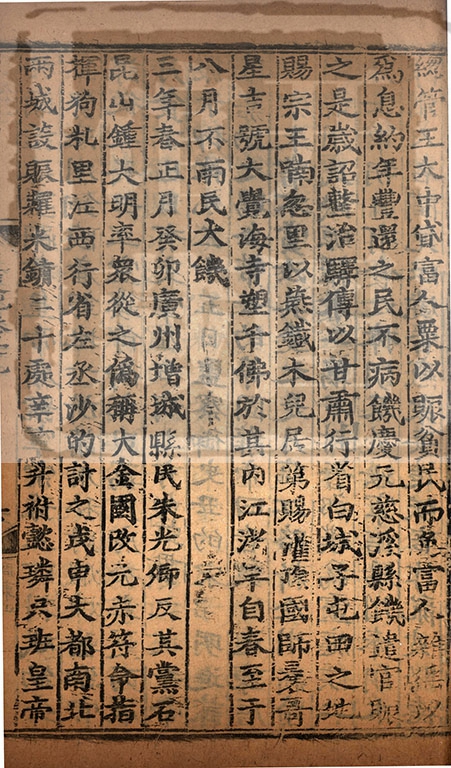 總管王大中貸富人粟以賑貧民而免富人雜徭以
爲息約年豐還之民不病饑慶元慈溪縣饑遣官賑
之是歲詔整治驛傳以甘肅行省白城子屯田之地
賜宗王喃忽里以燕鐵木兒居第賜灌頂國師曩哥
星吉號大覺海寺塑千佛於其內江浙旱自春至于
八月不雨民大饑
三年春正月癸卯廣州增城縣民朱光卿反其黨石
昆山鍾大明率衆從之僞稱大金國改元赤符命指
揮狗札里江西行省左丞沙的討之戊申大都南北
兩城設賑糶米鋪三十處辛亥升祔懿璘只班皇帝